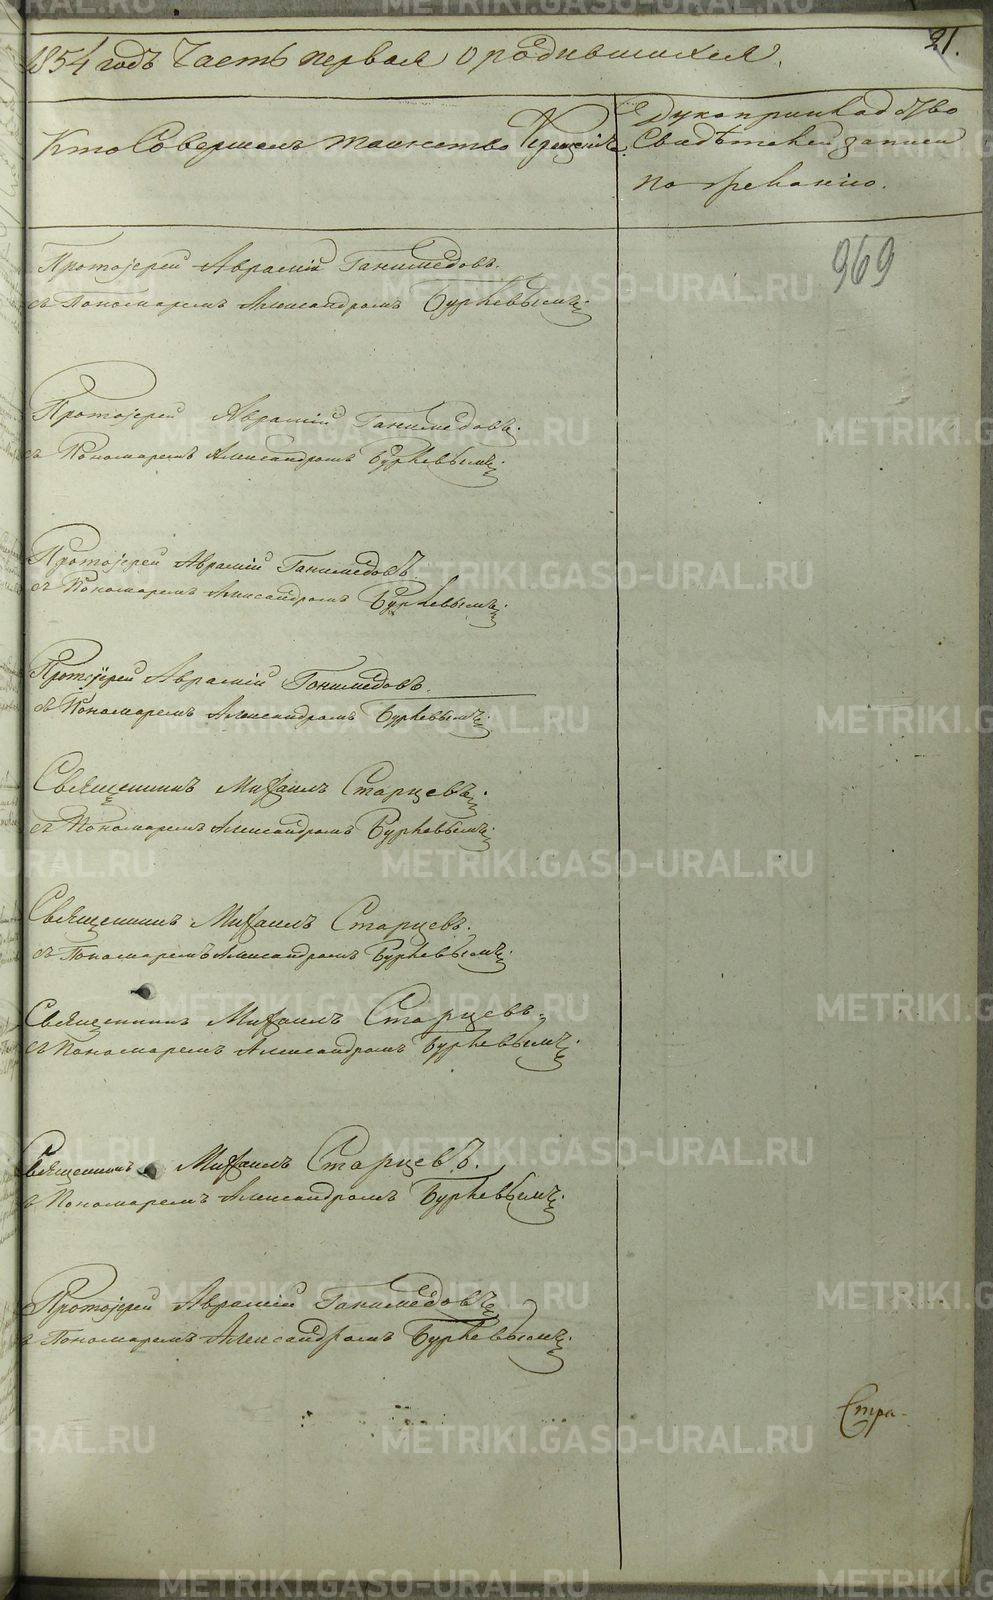 21.
1854 годъ Часть первая о родившихся.
Кто Совершалъ таинство Крещенія.
Рукоприкладство
Свидѣтелей записи
по желанію.
969
Протоіерей Аврамій Ганимедовъ.
съ Пономаремъ Александромъ Бурževымъ.
Протоіерей Аврамій Ганимедовъ.
съ Пономаремъ Александромъ
Протоіерей Аврамій Ганимедовъ
съ Пономаремъ Александромъ
Протоіерей Аврамій Ганимедовъ.
съ Пономаремъ Александромъ
Священникъ Михаилъ Старцевъ.
съ Пономаремъ Александромъ
Священникъ Михаилъ Старцевъ.
съ Пономаремъ Александромъ
Священникъ Михаилъ Старцевъ.
съ Пономаремъ Александромъ
Священникъ Михаилъ Старцевъ.
съ Пономаремъ Александромъ
Протоіерей Аврамій Ганимедовъ
съ Пономаремъ Александромъ
Стра-
METRIKI.GASO-URAL.RU